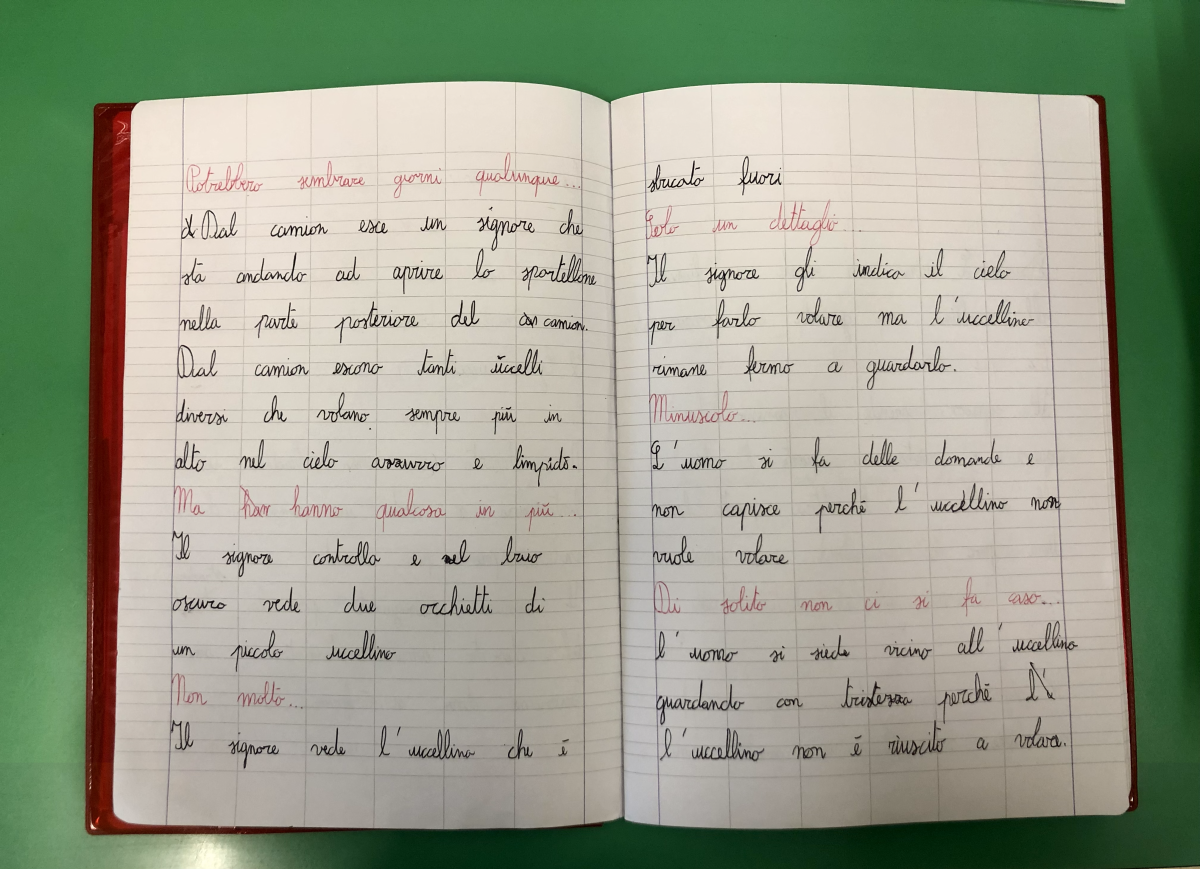 Potrebbero sembrare giorni qualunque...
Dal camion esce un signore che
sta andando ad aprire lo sportellone
nella parte posteriore del camion.
Dal camion escono tanti uccelli
diversi che volano sempre più in
alto nel cielo azzurro e limpido.
Ma hanno qualcosa in più...
Il signore controlla e nel buio
oscuro vede due occhietti di
un piccolo uccellino
Non molto...
Il signore vede l'uccellino che è
sbucato fuori
Solo un dettaglio...
Il signore gli indica il cielo
per farlo volare ma l'uccellino
rimane fermo a guardarlo.
Minuscolo...
L'uomo si fa delle domande e
non capisce perché l'uccellino non
vuole volare
Di solito non ci si fa caso...
l'uomo si siede vicino all'uccellino
guardando con tristezza perché
l'uccellino non è riuscito a volare.